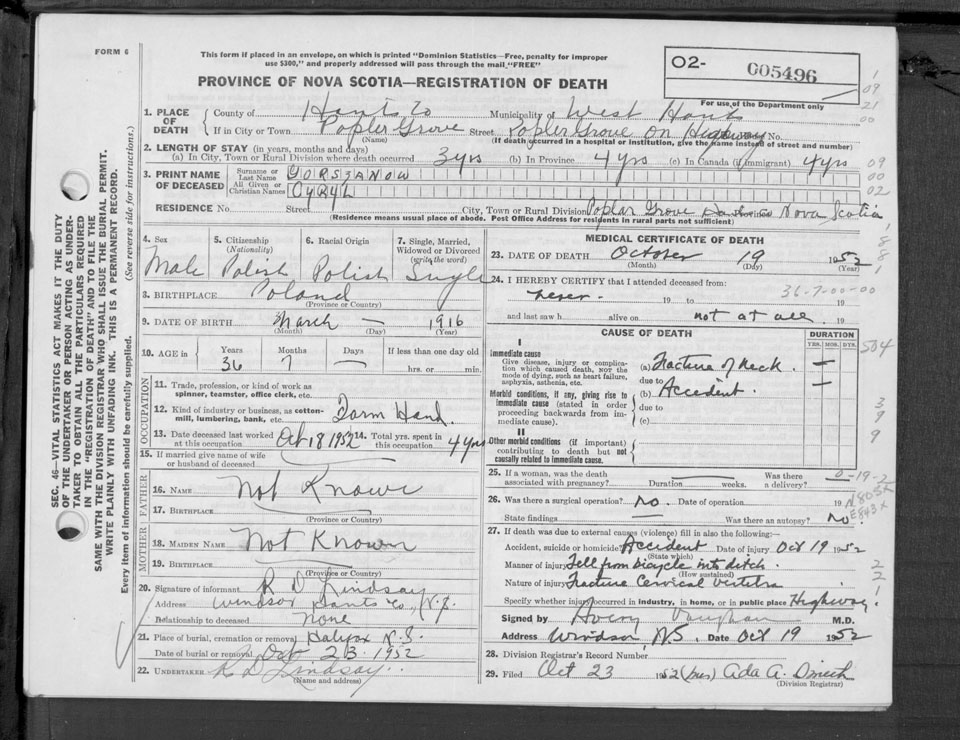 FORM 6
This form if placed in an envelope, on which is printed "Dominion Statistics—Free, penalty for improper
use $300," and properly addressed will pass through the mail "FREE"
PROVINCE OF NOVA SCOTIA—REGISTRATION OF DEATH
O2- 005496
For use of the Department only
1. PLACE OF DEATH County of Hants Co Municipality of West Hants
If in City or Town Popler Grove (Name) Street Popler Grove on Highway No.
(If death occurred in a hospital or institution, give the name instead of street and number)
2. LENGTH OF STAY (in years, months and days)
(a) In City, Town or Rural Division where death occurred 3 yrs (b) In Province 4 yrs (c) In Canada (if immigrant) 4 yrs
3. PRINT NAME OF DECEASED Surname or Last Name GORSZANOW
All Given or Christian Names CYRYL
RESIDENCE No. Street City, Town or Rural Division Poplar Grove Nova Scotia
(Residence means usual place of abode. Post Office Address for residents in rural parts not sufficient)
4. Sex 5. Citizenship (Nationality) 6. Racial Origin 7. Single, Married, Widowed or Divorced (write the word)
Male Polish Polish Single
8. BIRTHPLACE Poland
(Province or Country)
9. DATE OF BIRTH March — 1916
(Month) (Day) (Year)
10. AGE in Years Months Days If less than one day old
36 7 — hrs. or min.
OCCUPATION
11. Trade, profession, or kind of work as
spinner, teamster, office clerk, etc.
12. Kind of industry or business, as cotton-
mill, lumbering, bank, etc. Farm Hand
13. Date deceased last worked at this occupation Oct 18 1952 14. Total yrs. spent in this occupation 4 yrs
15. If married give name of wife
or husband of deceased
FATHER
16. NAME Not Known
17. BIRTHPLACE
(Province or Country)
MOTHER
18. MAIDEN NAME Not Known
19. BIRTHPLACE
(Province or Country)
20. Signature of informant R D Lindsay
Address Windsor Hants Co, N.S.
Relationship to deceased None
21. Place of burial, cremation or removal Halifax N.S.
Date of burial or removal Oct 23 1952
22. UNDERTAKER R D Lindsay
(Name and address)
MEDICAL CERTIFICATE OF DEATH
23. DATE OF DEATH October 19 1952
(Month) (Day) (Year)
24. I HEREBY CERTIFY that I attended deceased from:
19 to 19
36-7-00-00
and last saw h alive on not at all 19
CAUSE OF DEATH DURATION
YRS. MOS. DYS.
I
Immediate cause
Give disease, injury or complication which caused death, NOT the mode of dying, such as heart failure, asphyxia, asthenia, etc.
(a) Fracture of Neck. —
due to
(b) Accident. —
Morbid conditions, if any, giving rise to immediate cause (stated in order proceeding backwards from immediate cause).
due to
(c)
II
Other morbid conditions (if important) contributing to death but not causally related to immediate cause.
25. If a woman, was the death associated with pregnancy? Duration weeks. Was there a delivery?
0-19-2
26. Was there a surgical operation? no. Date of operation 19
N805X
E843X
State findings Was there an autopsy? no.
27. If death was due to external causes (violence) fill in also the following:—
Accident, suicide or homicide? Accident Date of injury Oct 19 1952
(State which)
Manner of injury Fell from bicycle into ditch.
(How sustained)
Nature of injury Fracture Cervical Vertebra
Specify whether injury occurred in industry, in home, or in public place Highway.
Signed by Avery Vaughan M.D.
Address Windsor, N.S. Date Oct 19 1952
28. Division Registrar's Record Number
29. Filed Oct 23 1952 (Mrs) Ada A.
(Division Registrar)
SEC. 46—VITAL STATISTICS ACT MAKES IT THE DUTY
OF THE UNDERTAKER OR PERSON ACTING AS UNDER-
TAKER TO OBTAIN ALL THE PARTICULARS REQUIRED
IN THE "REGISTRATION OF DEATH" AND TO FILE THE
SAME WITH THE DIVISION REGISTRAR WHO SHALL ISSUE THE BURIAL PERMIT.
WRITE PLAINLY WITH UNFADING INK. THIS IS A PERMANENT RECORD.
Every item of information should be carefully supplied. (See reverse side for instructions.)
1
09
21
00
09
00
02
1
8
8
1
504
3
9
9
2
2
1